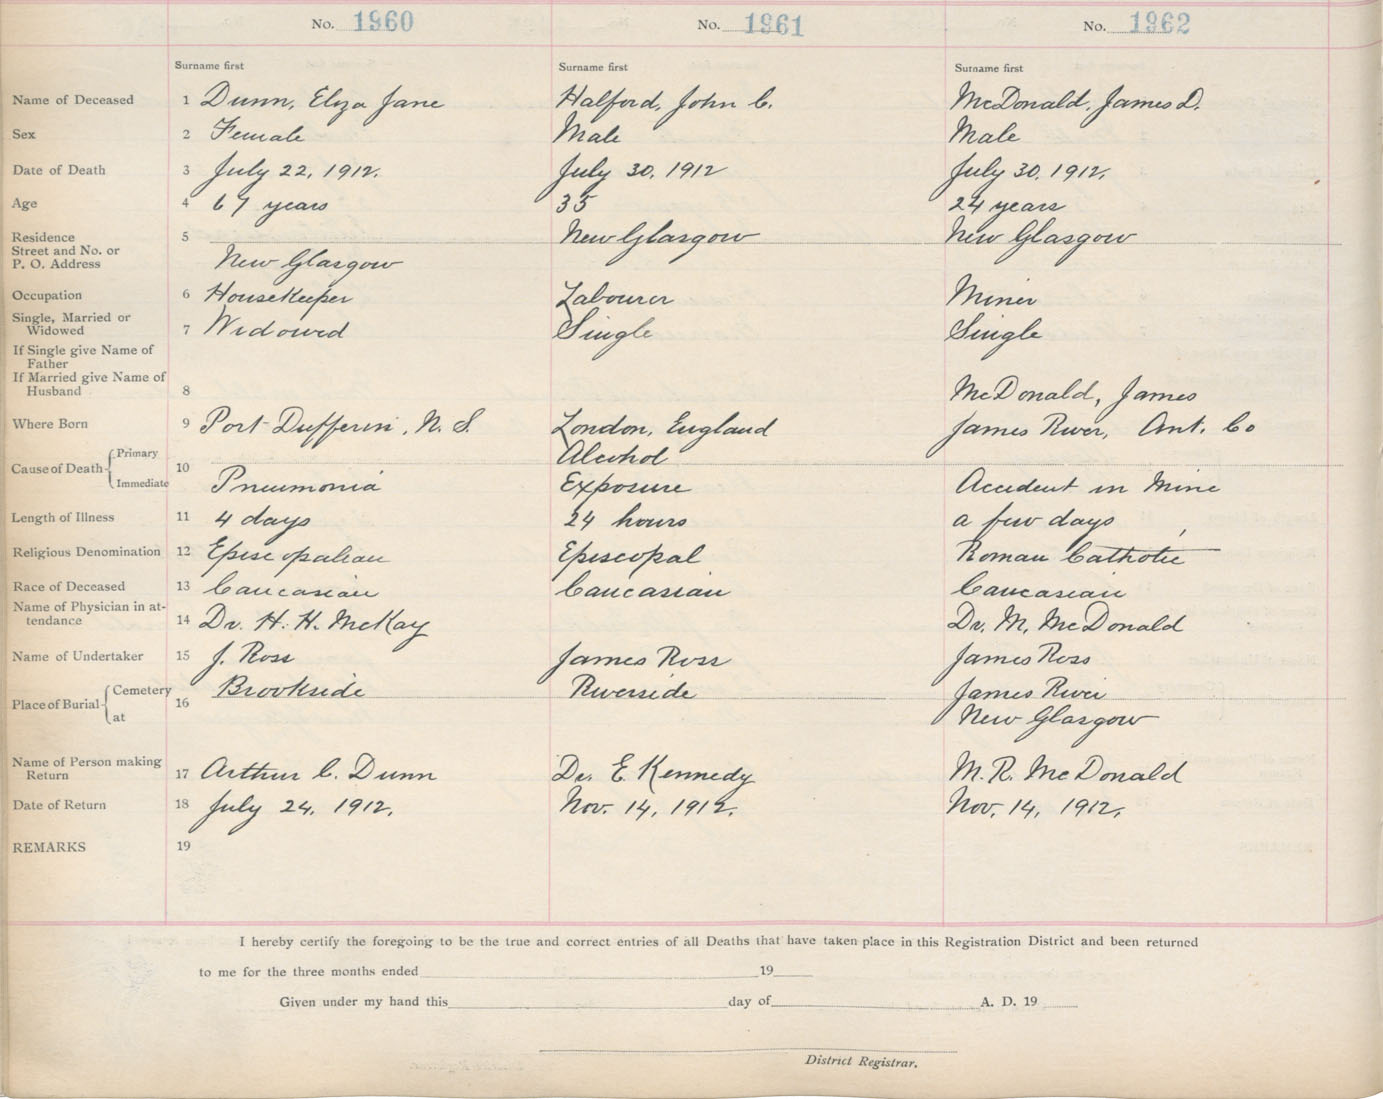 No. 1960 No. 1961 No. 1962
Surname first Surname first Surname first
Name of Deceased 1 Dunn, Eliza Jane Halford, John C. McDonald, James D.
Sex 2 Female Male Male
Date of Death 3 July 22, 1912. July 30, 1912 July 30, 1912.
Age 4 67 years 35 24 years
Residence 5 New Glasgow New Glasgow
Street and No. or
P. O. Address New Glasgow
Occupation 6 Housekeeper Labourer Miner
Single, Married or
Widowed 7 Widowed Single Single
If Single give Name of
Father
If Married give Name of
Husband 8 McDonald, James
Where Born 9 Port Dufferin, N. S. London, England James River, Ant. Co
Cause of Death Primary 10 Alcohol
Immediate Pneumonia Exposure Accident in Mine
Length of Illness 11 4 days 24 hours a few days
Religious Denomination 12 Episcopalian Episcopal Roman Catholic
Race of Deceased 13 Caucasian Caucasian Caucasian
Name of Physician in at-
tendance 14 Dr. H. H. McKay Dr. M. McDonald
Name of Undertaker 15 J. Ross James Ross James Ross
Place of Burial Cemetery 16 Brookside Riverside James River
at New Glasgow
Name of Person making
Return 17 Arthur C. Dunn Dr. E. Kennedy M. R. McDonald
Date of Return 18 July 24, 1912. Nov. 14, 1912. Nov. 14, 1912.
REMARKS 19
I hereby certify the foregoing to be the true and correct entries of all Deaths that have taken place in this Registration District and been returned
to me for the three months ended 19
Given under my hand this day of A. D. 19
District Registrar.